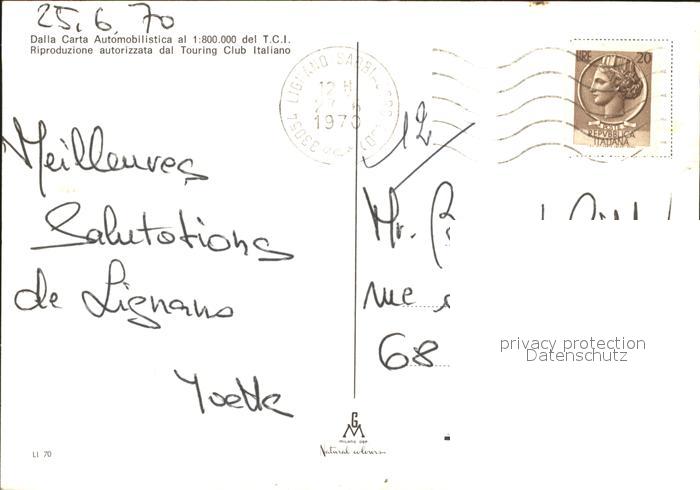 25.6.70
Dalla Carta Automobilistica al 1:800.000 del T.C.I.
Riproduzione autorizzata dal Touring Club Italiano
33054 LIGNANO SABBI
12 H
1970
LIRE 20
POSTE
REPVBBLICA
ITALIANA
12
Meilleures
Salutations
de Lignano
Yvette
Mr.
rue
68
privacy protection
Datenschutz
GM
MILANO DEP
Natural colours
LI 70